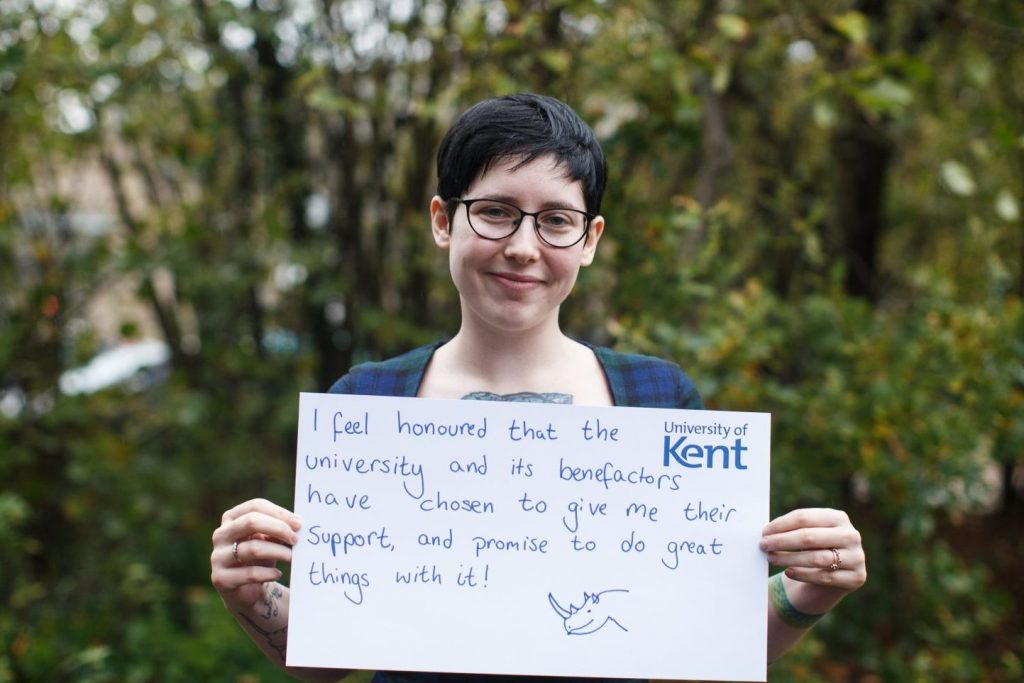 I feel honoured that the
University of
Kent
university and its benefactors
have chosen to give me their
support, and promise to do great
things with it!